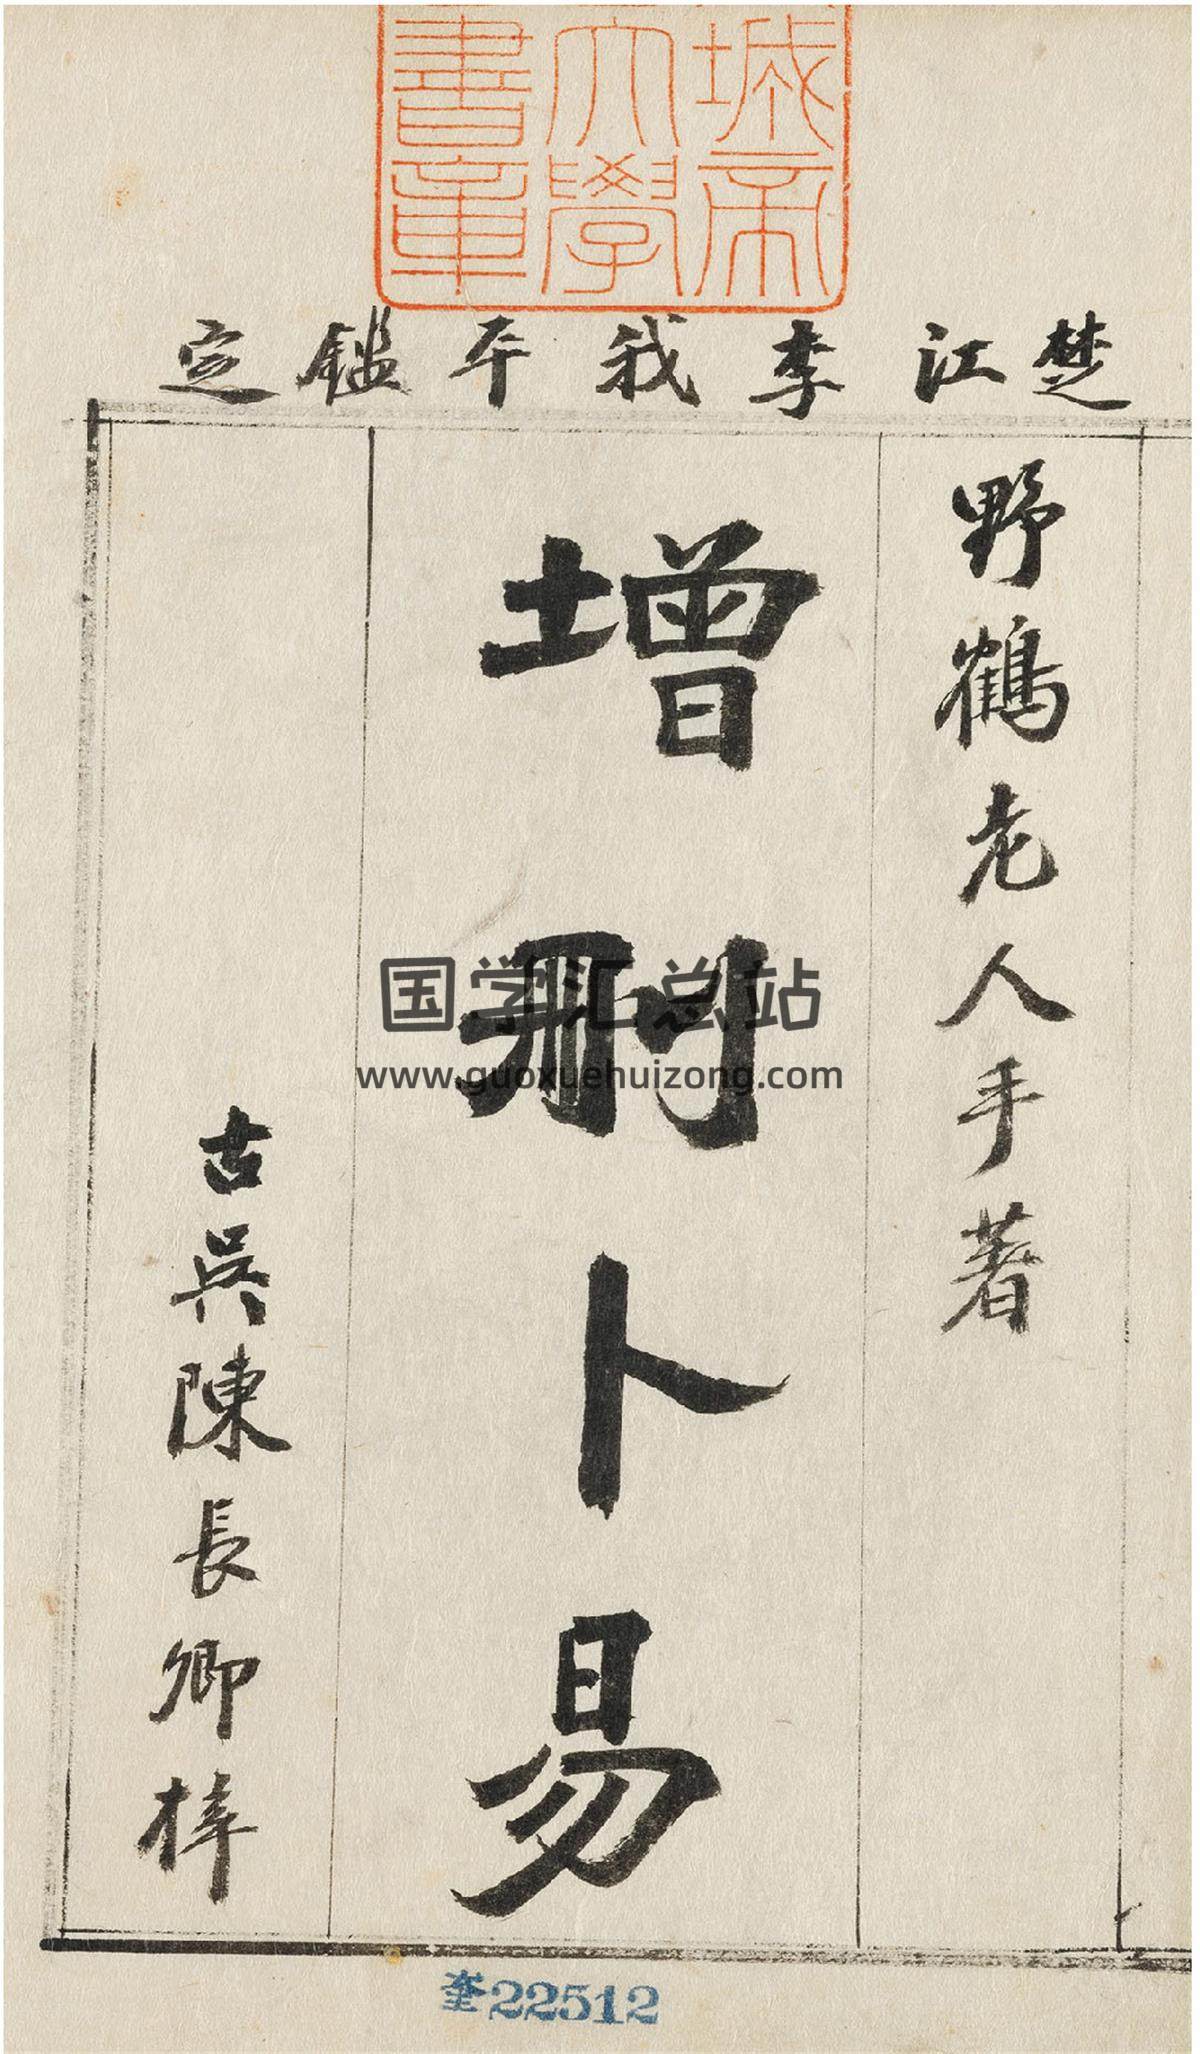 城帝
大學
書章
楚江李我平鑑定
野鶴老人手著
增刪卜易
古吳陳長卿梓
国学汇总站
www.guoxuehuizong.com
奎22512